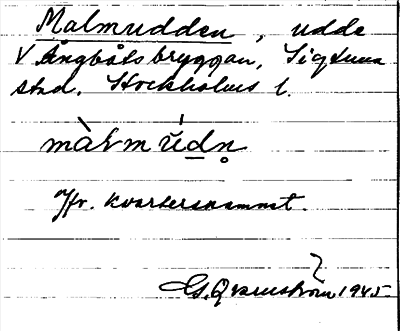 Malmudden, udde
V Ångbåtsbryggan, Sigtuna
stad. Stockholms l.
Jfr. kvartersnamnet.
G. Qvarnström 1945.